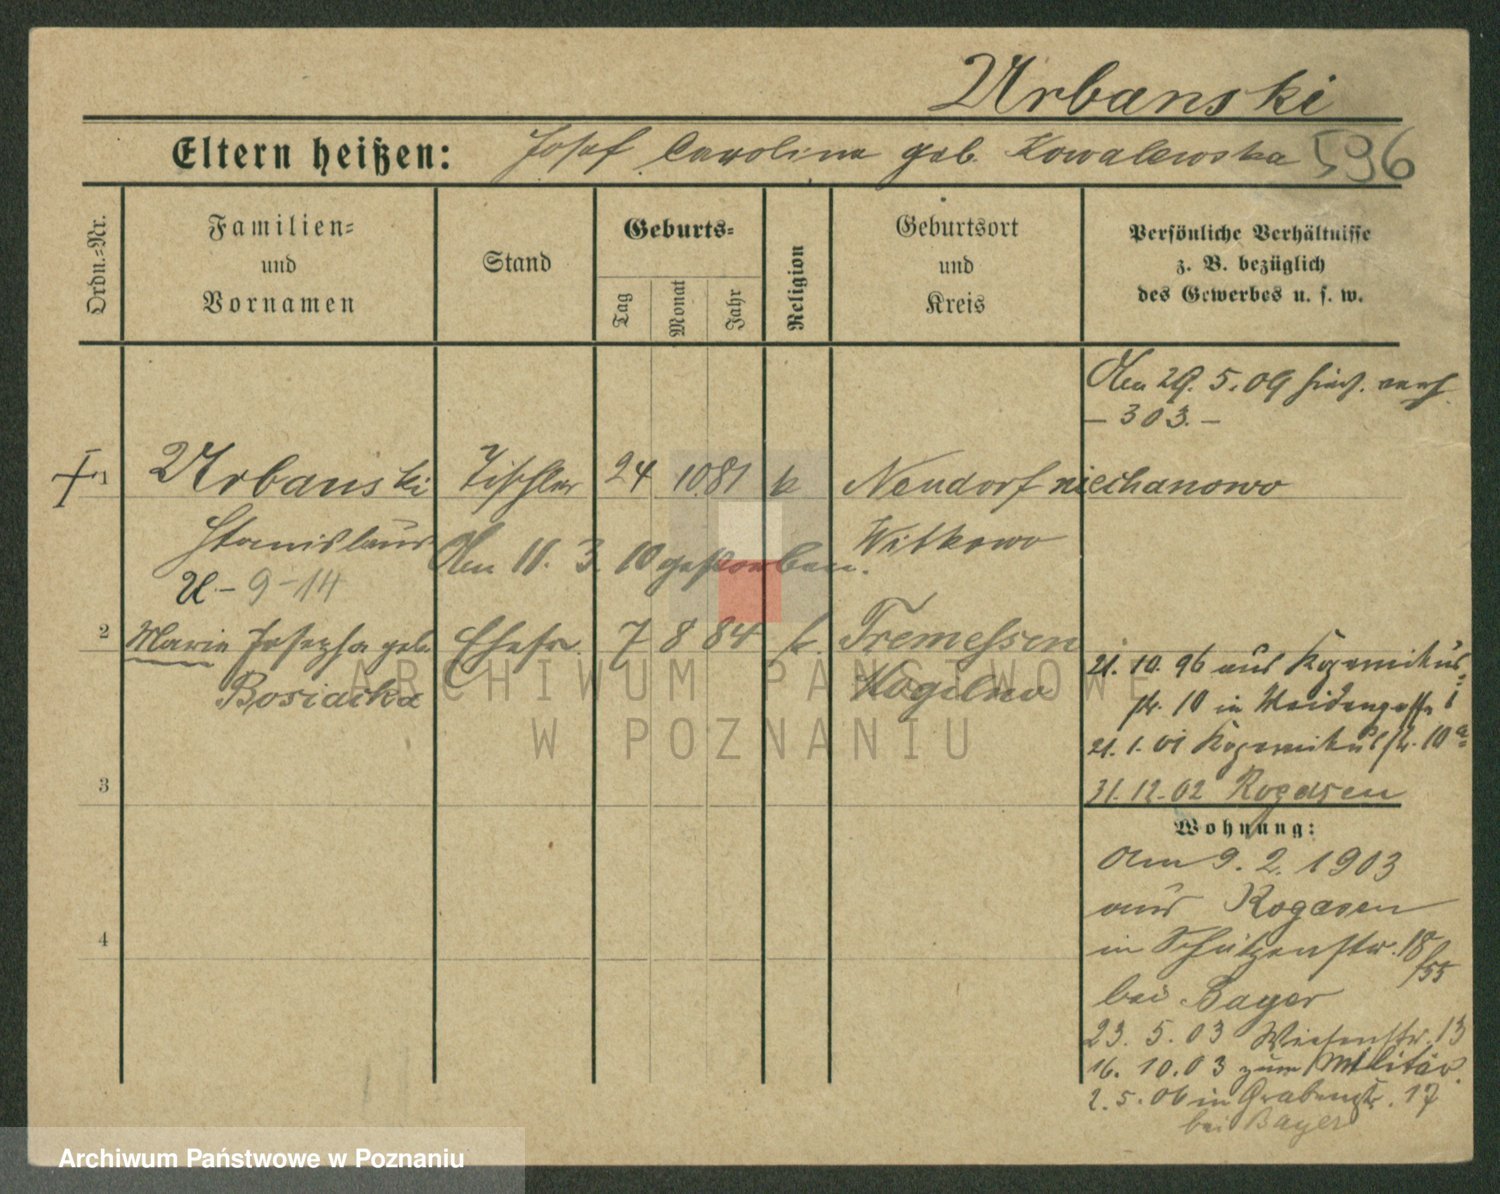 Urbanski
Eltern heißen: Josef Carolina geb. Kowalewska 596
Ordn.=Nr.
Familien=
und
Vornamen
Stand
Geburts=
Tag
Monat
Jahr
Religion
Geburtsort
und
Kreis
Persönliche Verhältnisse
z. B. bezüglich
des Gewerbes u. s. w.
Am 29. 5. 09
– 303. –
1 Urbanski Tischler 24 10 81 k Neudorf niechanowo
Stanislaus Witkowo
Am 11. 3. 10 gestorben.
U – 9 – 14
2 Maria Josepha geb. Ehefr. 7 8 84 k. Tremessen
Bosiacka Mogilno
21. 10. 96 aus
str. 10 in Weidengasse 1
21. 1. 01 str. 10a
31. 12. 02 Rogasen
3
Wohnung:
Am 9. 2. 1903
aus Rogasen
in Schützenstr. 18/55
bei Bayer
4
23. 5. 03 Wiesenstr. 13
16. 10. 03 zum Militär.
2. 5. 06 in Grabenstr. 17
bei Bayer
ARCHIWUM PAŃSTWOWE
W POZNANIU
Archiwum Państwowe w Poznaniu